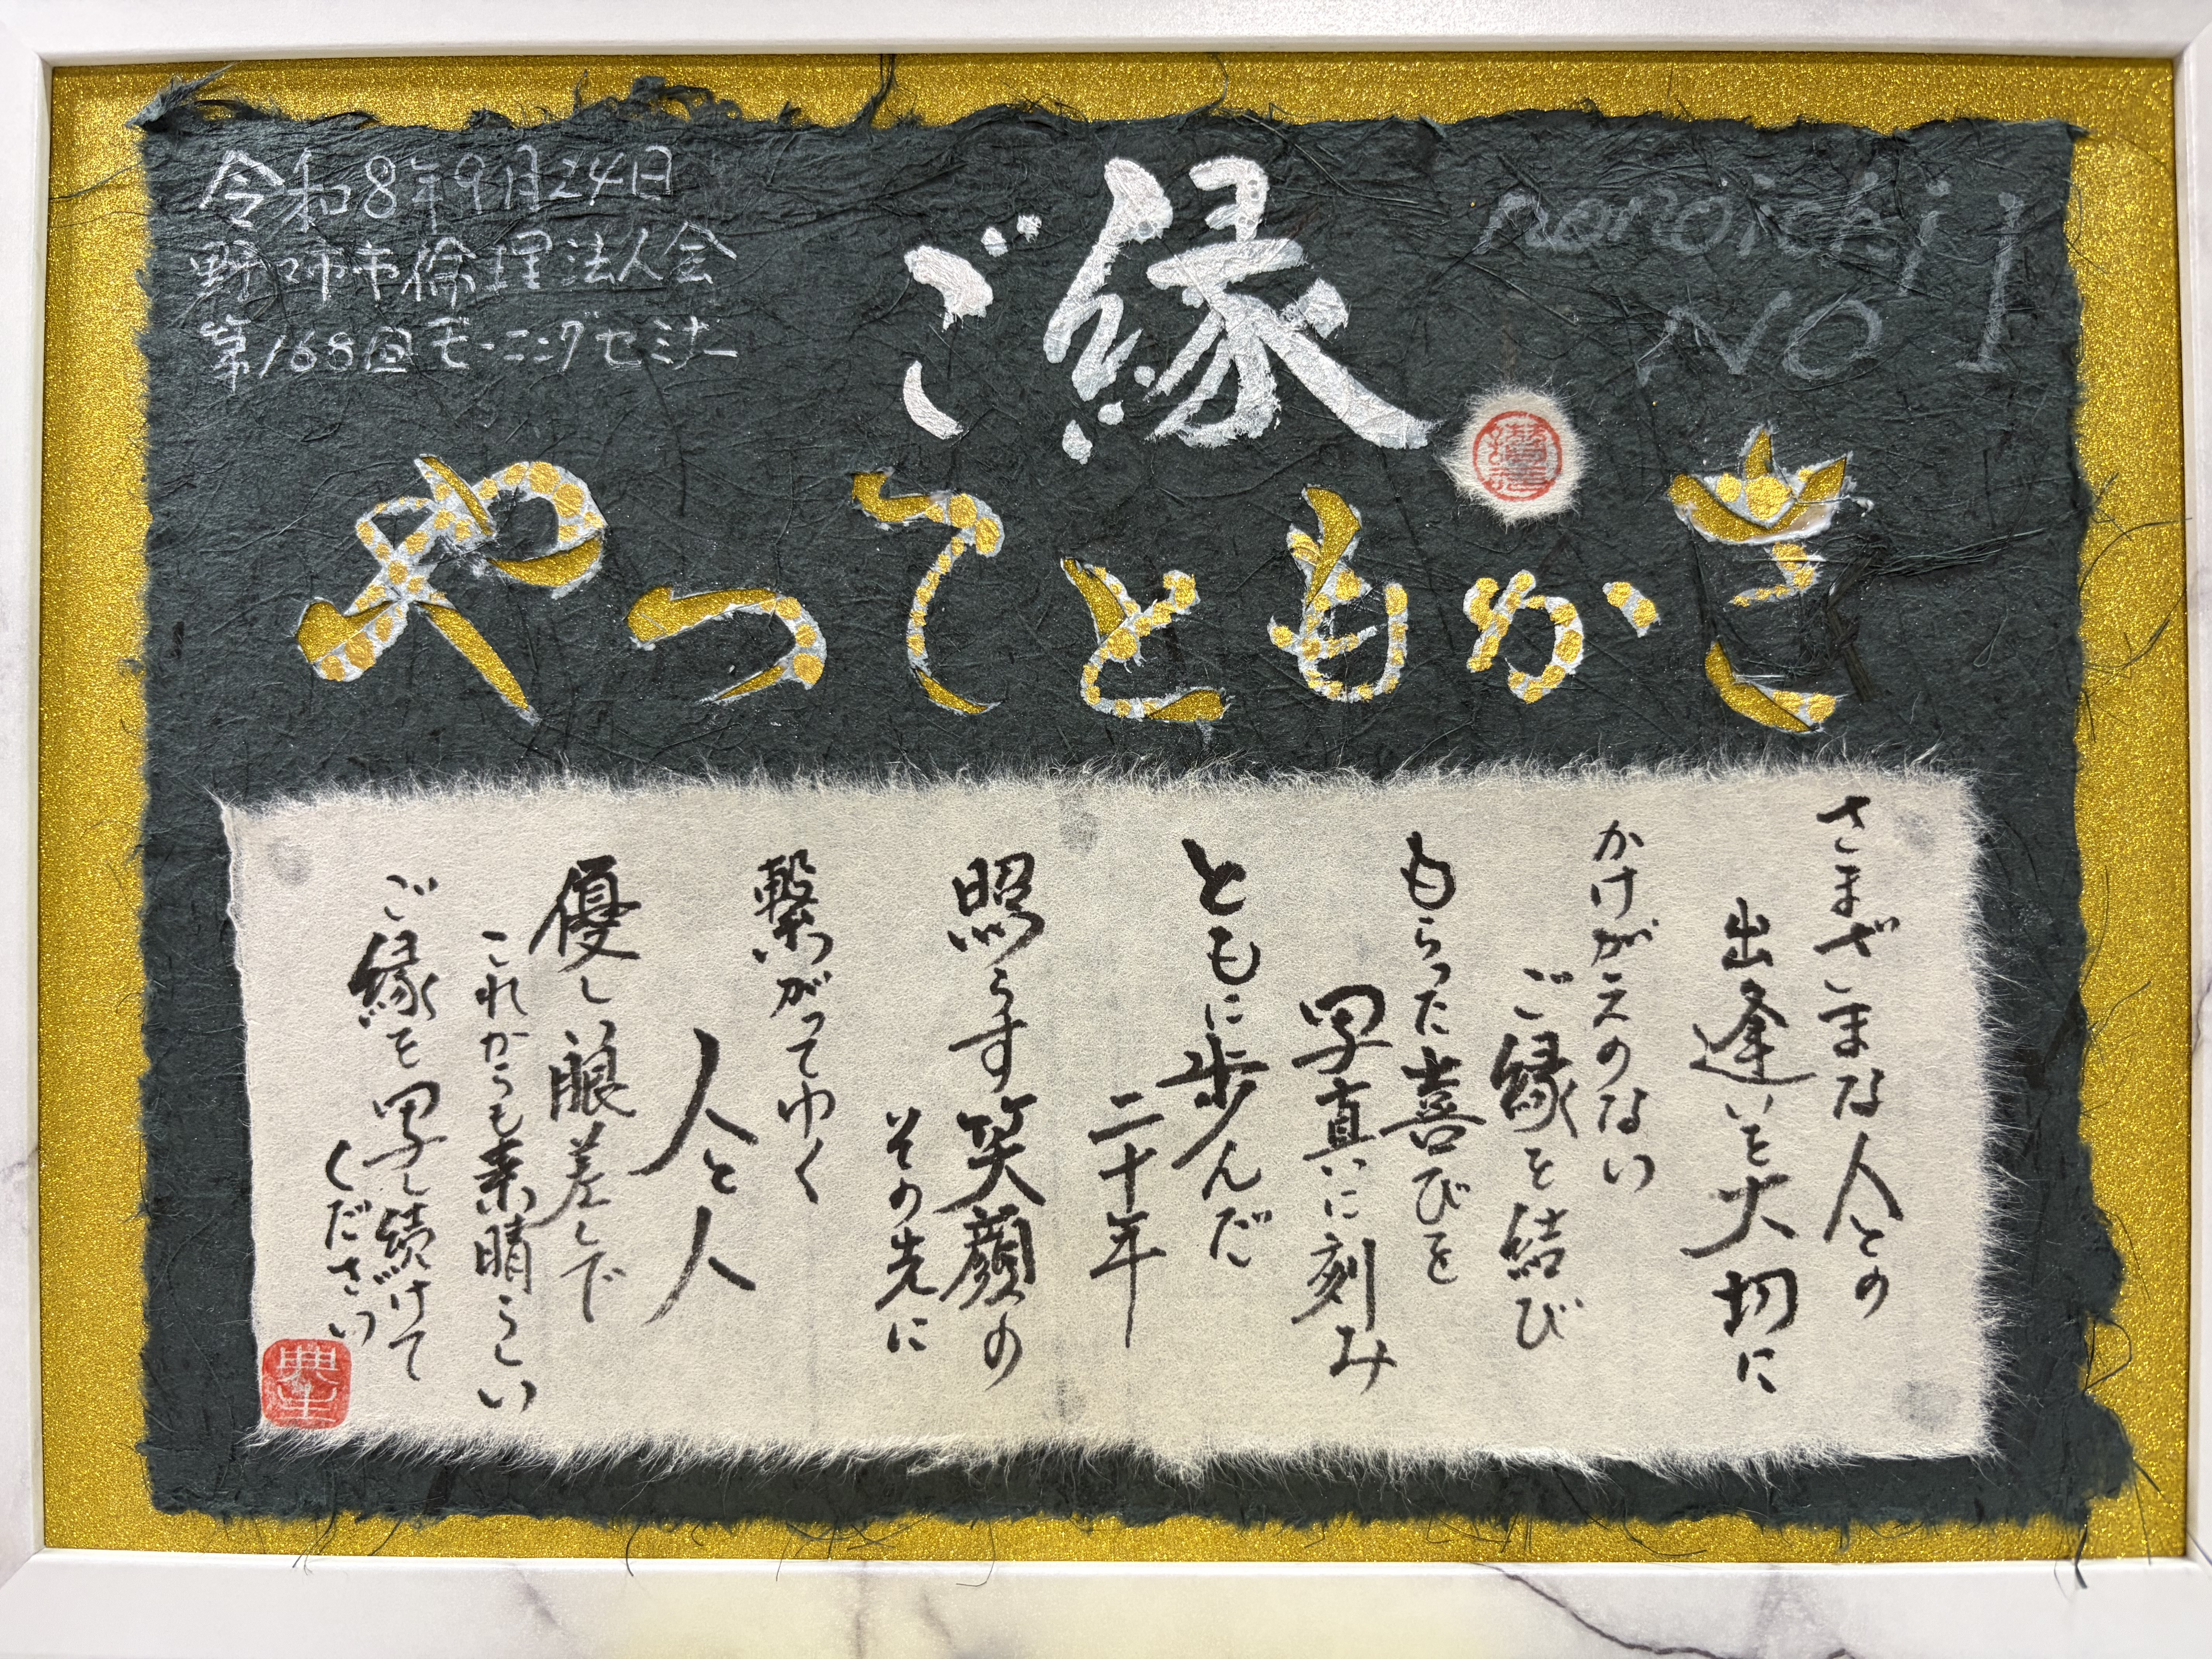 令和8年9月24日
野々市市倫理法人会
第168回モーニングセミナー
ご縁
nonoichi
NO 1
さかもとてつや
さまざまな人との
出逢いを大切に
かけがえのない
ご縁を結び
もらった喜びを
写真に刻み
ともに歩んだ
二十年
照らす笑顔の
その先に
繋がってゆく
人と人
優しい眼差しで
これからも素晴らしい
ご縁を写し続けて
ください